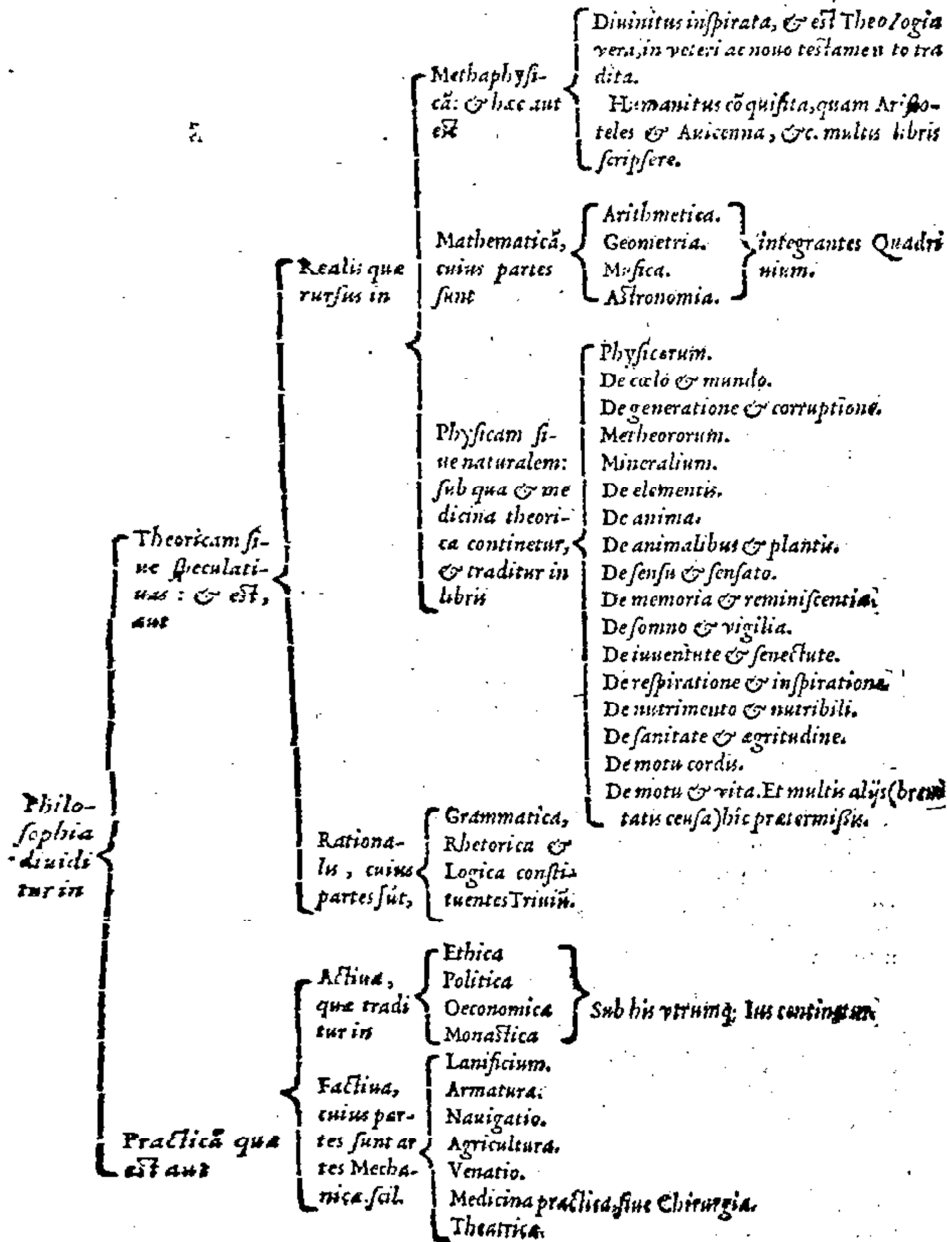 Philo-
sophia
diuidi
tur in
Theoricam si-
ue speculati-
uas : & est,
aut
Realis quæ
rursus in
Methaphysi-
cã: & hæc aut
est
Diuinitus inspirata, & est Theologia
vera, in veteri ac nouo testamen to tra
dita.
Humanitus cõquisita, quam Aristo-
teles & Auicenna, &c. multis libris
scripsere.
Mathematicã,
cuius partes
sunt
Arithmetica.
Geometria.
Musica.
Astronomia.
integrantes Quadri
uium.
Physicam si-
ue naturalem:
sub qua & me
dicina theori-
ca continetur,
& traditur in
libris
Physicorum.
De cœlo & mundo.
De generatione & corruptione.
Metheororum.
Mineralium.
De elementis.
De anima.
De animalibus & plantis.
De sensu & sensato.
De memoria & reminiscentia.
De somno & vigilia.
De iuuentute & senectute.
De respiratione & inspiratione.
De nutrimento & nutribili.
De sanitate & ægritudine.
De motu cordis.
De motu & vita. Et multis alijs (breui
tatis causa) hic prætermißis.
Rationa-
lis, cuius
partes sũt,
Grammatica,
Rhetorica &
Logica consti-
tuentes Triuiũ.
Practicã quæ
est aut
Actiua,
quæ tradi
tur in
Ethica
Politica
Oeconomica
Monastica
Sub his vtrumq; Ius continetur.
Factiua,
cuius par-
tes sunt ar
tes Mecha-
nicæ. scil.
Lanificium.
Armatura.
Nauigatio.
Agricultura.
Venatio.
Medicina practica, siue Chirurgia.
Theatrica.